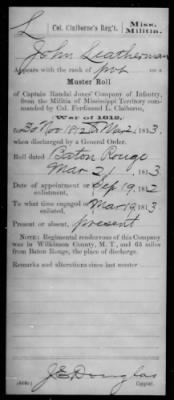 L
Col. Claiborne's Reg't.
Miss. Militia.
John Leatherman
Appears with the rank of pvt on a
Muster Roll
of Captain Randal Jones' Company of Infantry,
from the Militia of Mississippi Territory com-
manded by Col. Ferdinand L. Claiborne,
War of 1812,
to 30 Nov 1812 to Mar 2, 1813,
when discharged by a General Order.
Roll dated Baton Rouge
Mar 2, 1813
Date of appointment or enlistment, Sep 19, 1812
To what time engaged or enlisted, Mar 19, 1813
Present or absent, present
NOTE: Regimental rendezvous of this Company
was in Wilkinson County, M. T., and 65 miles
from Baton Rouge, the place of discharge.
Remarks and alterations since last muster
J E Douglas
Copyist.